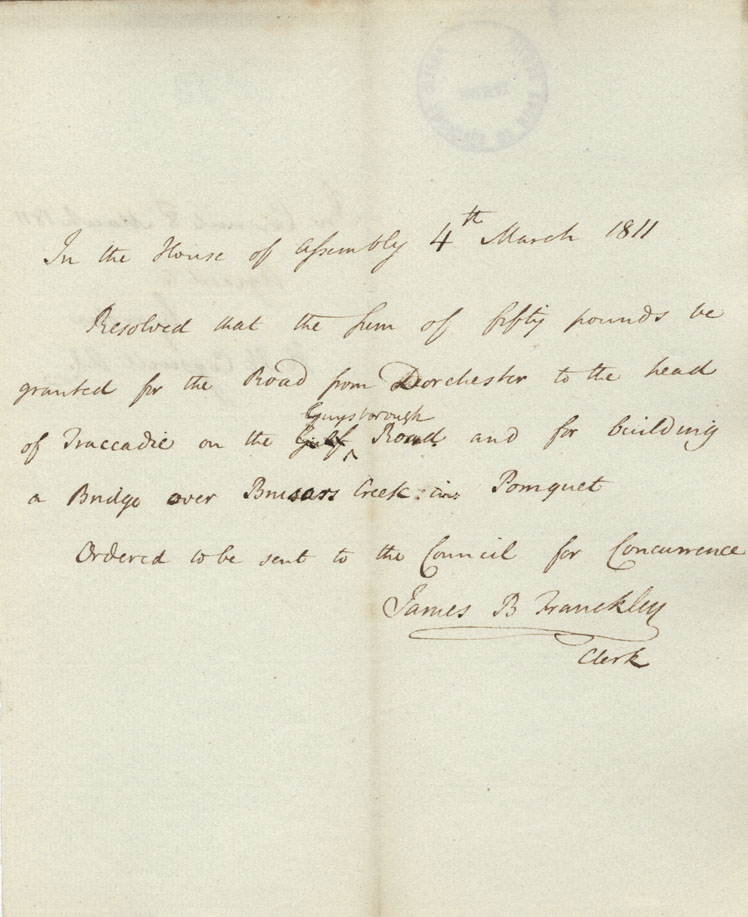 In the House of Assembly 4th March 1811
Resolved that the sum of fifty pounds be
granted for the Road from Dorchester to the head
Guysborough
of Traccadie on the Gulf ^ Road and for building
a Bridge over Creek in Pomquet
Ordered to be sent to the Council for Concurrence
James B Franckley
Clerk